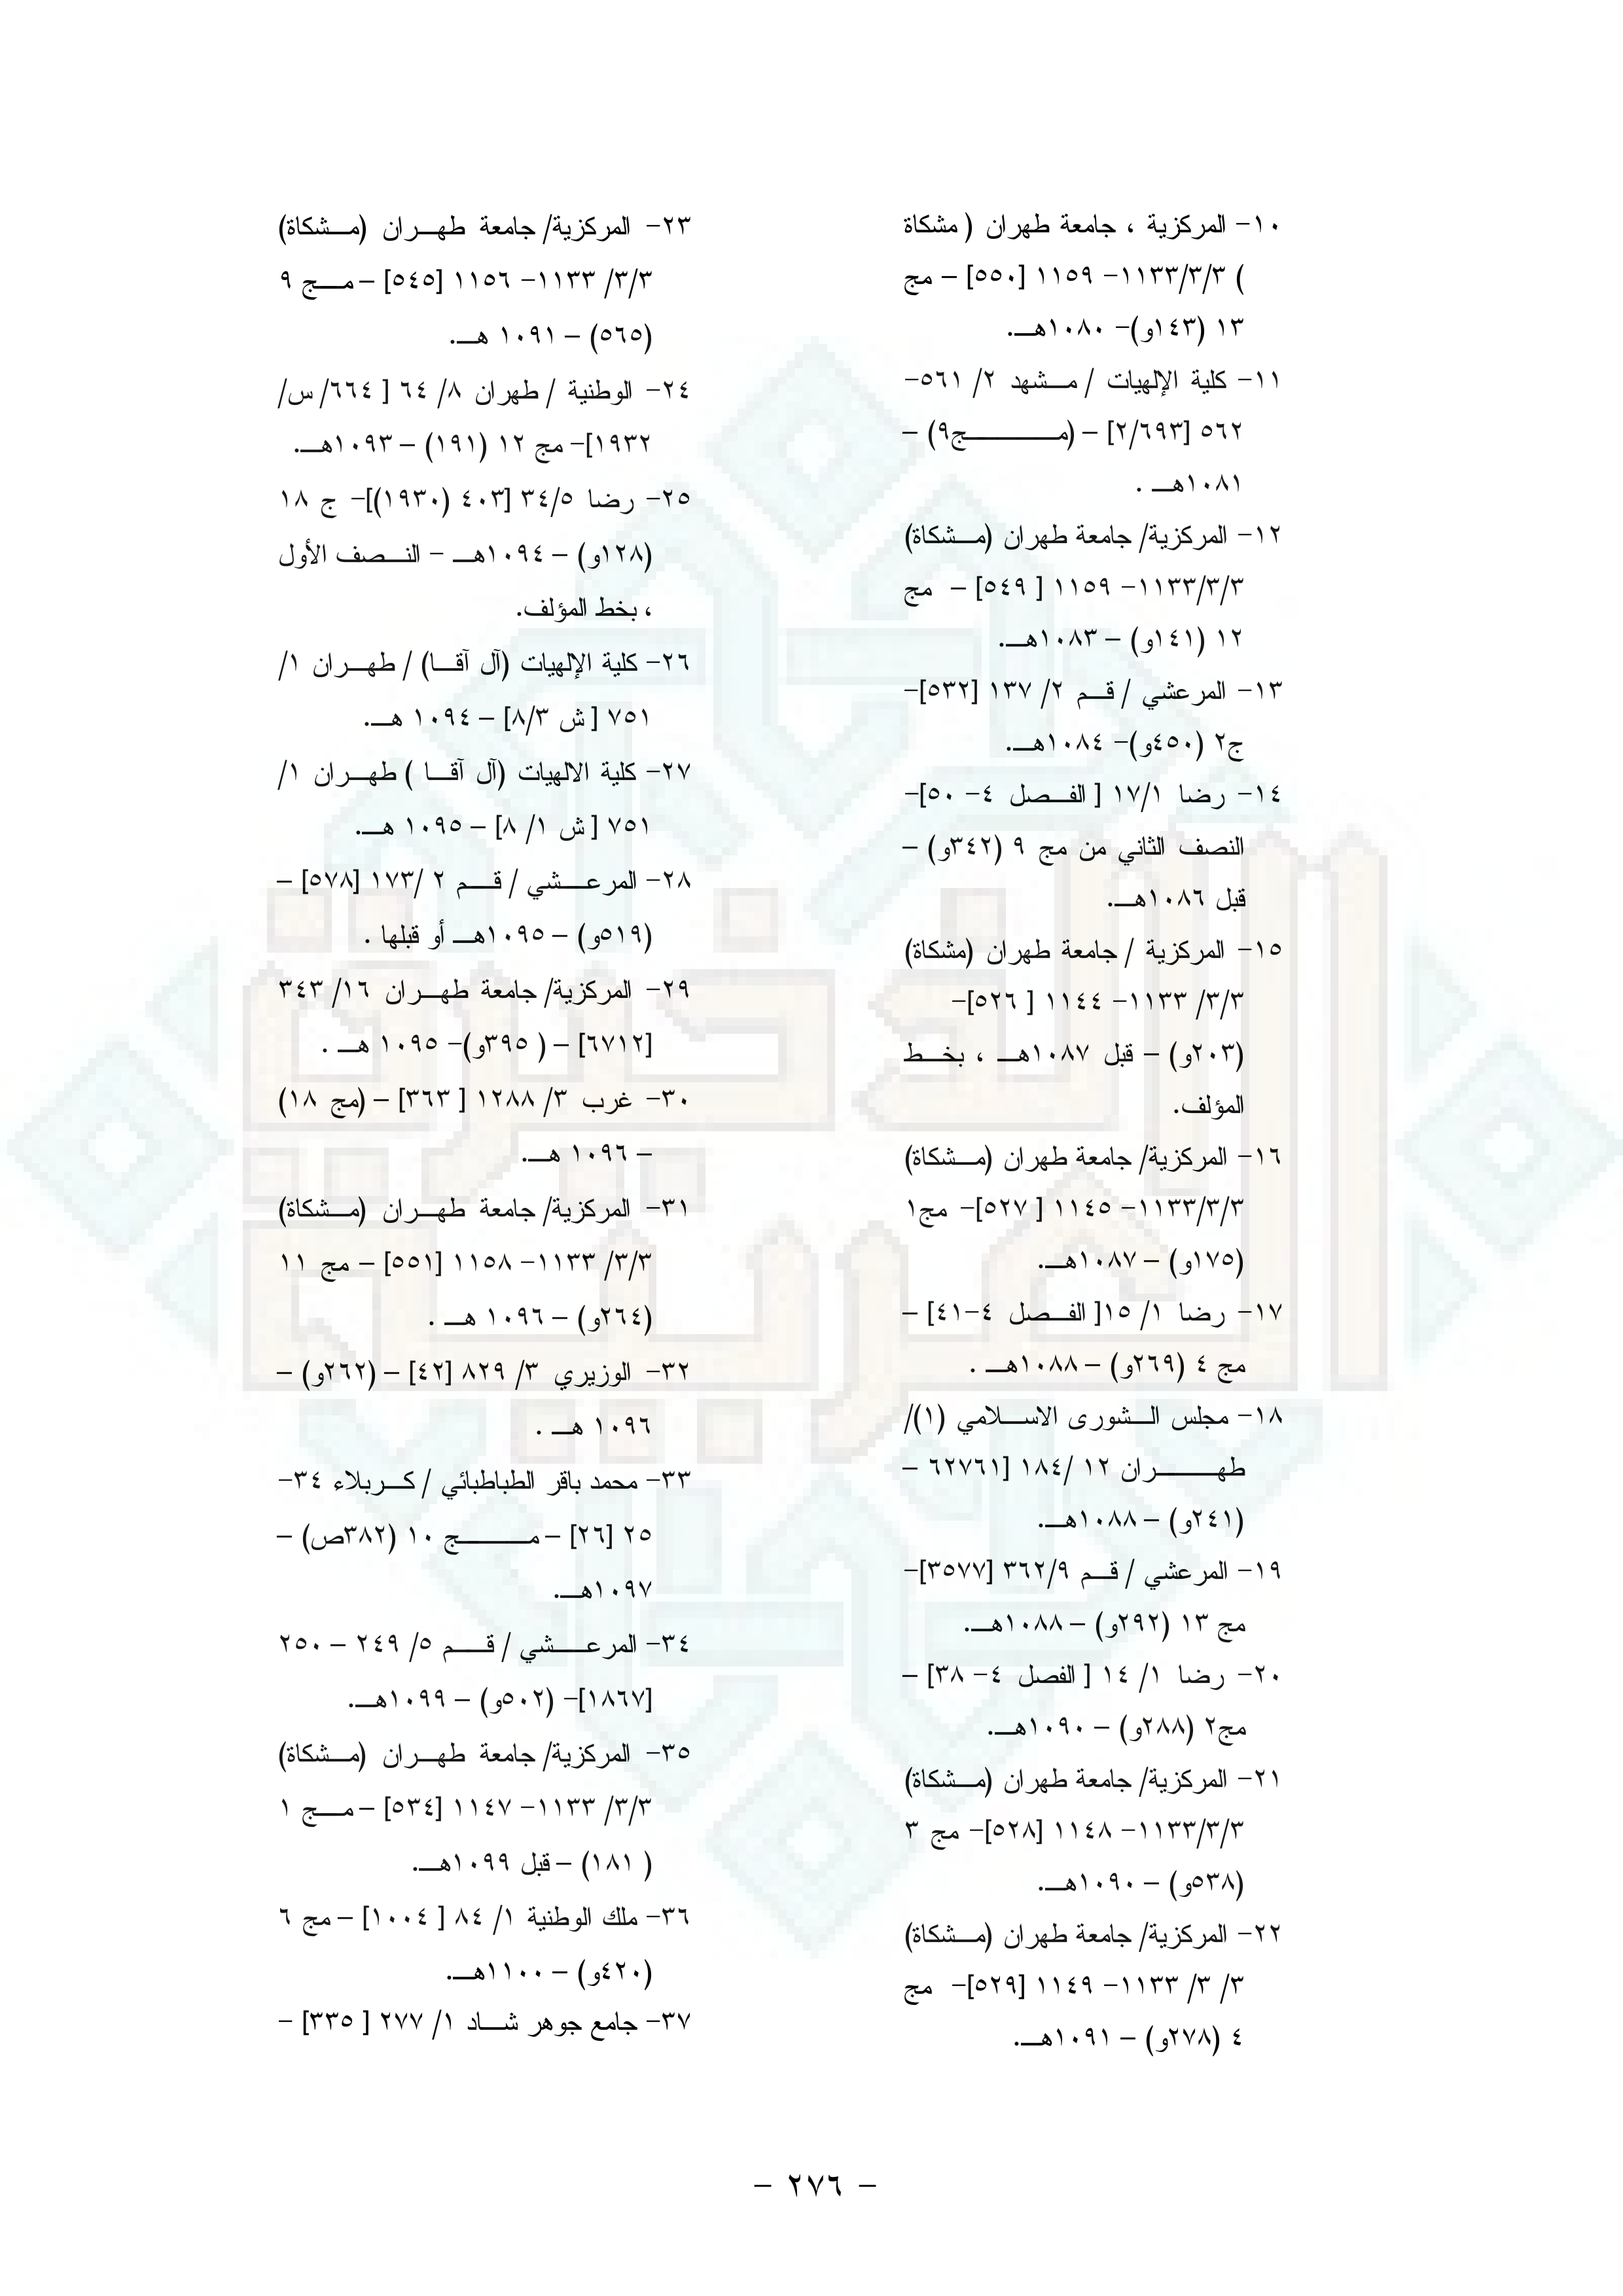 ١٠- المركزية ، جامعة طهران ( مشكاة
) ١١٣٣/٣/٣- ١١٥٩ [٥٥٠] – مج
١٣ (١٤٣و)- ١٠٨٠هـ.
١١- كلية الإلهيات / مشهد ٢/ ٥٦١-
٥٦٢ [٢/٦٩٣] – (مج٩) –
١٠٨١هـ .
١٢- المركزية/ جامعة طهران (مشكاة)
١١٣٣/٣/٣- ١١٥٩ [ ٥٤٩] – مج
١٢ (١٤١و) – ١٠٨٣هـ.
١٣- المرعشي / قم ٢/ ١٣٧ [٥٣٢]-
ج٢ (٤٥٠و)- ١٠٨٤هـ.
١٤- رضا ١٧/١ [ الفصل ٤- ٥٠]-
النصف الثاني من مج ٩ (٣٤٢و) –
قبل ١٠٨٦هـ.
١٥- المركزية / جامعة طهران (مشكاة)
٣/٣/ ١١٣٣- ١١٤٤ [ ٥٢٦]-
(٢٠٣و) – قبل ١٠٨٧هـ ، بخط
المؤلف.
١٦- المركزية/ جامعة طهران (مشكاة)
١١٣٣/٣/٣- ١١٤٥ [ ٥٢٧]- مج١
(١٧٥و) – ١٠٨٧هـ.
١٧- رضا ١/ ١٥[ الفصل ٤-٤١] –
مج ٤ (٢٦٩و) – ١٠٨٨هـ .
١٨- مجلس الشورى الاسلامي (١)/
طهران ١٢ /١٨٤ [٦٢٧٦١ –
(٢٤١و) – ١٠٨٨هـ.
١٩- المرعشي / قم ٣٦٢/٩ [٣٥٧٧]-
مج ١٣ (٢٩٢و) – ١٠٨٨هـ.
٢٠- رضا ١/ ١٤ [ الفصل ٤- ٣٨] –
مج٢ (٢٨٨و) – ١٠٩٠هـ.
٢١- المركزية/ جامعة طهران (مشكاة)
١١٣٣/٣/٣- ١١٤٨ [٥٢٨]- مج ٣
(٥٣٨و) – ١٠٩٠هـ.
٢٢- المركزية/ جامعة طهران (مشكاة)
٣/ ٣/ ١١٣٣- ١١٤٩ [٥٢٩]- مج
٤ (٢٧٨و) – ١٠٩١هـ.
٢٣- المركزية/ جامعة طهران (مشكاة)
٣/٣/ ١١٣٣- ١١٥٦ [٥٤٥] – مج ٩
(٥٦٥) – ١٠٩١ هـ.
٢٤- الوطنية / طهران ٨/ ٦٤ [ ٦٦٤/ س/
١٩٣٢]- مج ١٢ (١٩١) – ١٠٩٣هـ.
٢٥- رضا ٣٤/٥ [٤٠٣ (١٩٣٠)]- ج ١٨
(١٢٨و) – ١٠٩٤هـ - النصف الأول
، بخط المؤلف.
٢٦- كلية الإلهيات (آل آقا) / طهران ١/
٧٥١ [ ش ٨/٣] – ١٠٩٤ هـ.
٢٧- كلية الالهيات (آل آقا ) طهران ١/
٧٥١ [ ش ١/ ٨] – ١٠٩٥ هـ.
٢٨- المرعشي / قم ٢ /١٧٣ [٥٧٨] –
(٥١٩و) – ١٠٩٥هـ أو قبلها .
٢٩- المركزية/ جامعة طهران ١٦/ ٣٤٣
[٦٧١٢] – ( ٣٩٥و)- ١٠٩٥ هـ .
٣٠- غرب ٣/ ١٢٨٨ [ ٣٦٣] – (مج ١٨)
– ١٠٩٦ هـ.
٣١- المركزية/ جامعة طهران (مشكاة)
٣/٣/ ١١٣٣- ١١٥٨ [٥٥١] – مج ١١
(٢٦٤و) – ١٠٩٦ هـ .
٣٢- الوزيري ٣/ ٨٢٩ [٤٢] – (٢٦٢و) –
١٠٩٦ هـ .
٣٣- محمد باقر الطباطبائي / كربلاء ٣٤-
٢٥ [٢٦] – مج ١٠ (٣٨٢ص) –
١٠٩٧هـ.
٣٤- المرعشي / قم ٥/ ٢٤٩ – ٢٥٠
[١٨٦٧]- (٥٠٢و) – ١٠٩٩هـ.
٣٥- المركزية/ جامعة طهران (مشكاة)
٣/٣/ ١١٣٣- ١١٤٧ [٥٣٤] – مج ١
( ١٨١) – قبل ١٠٩٩هـ.
٣٦- ملك الوطنية ١/ ٨٤ [ ١٠٠٤] – مج ٦
(٤٢٠و) – ١١٠٠هـ.
٣٧- جامع جوهر شاد ١/ ٢٧٧ [ ٣٣٥] –
– ٢٧٦ –